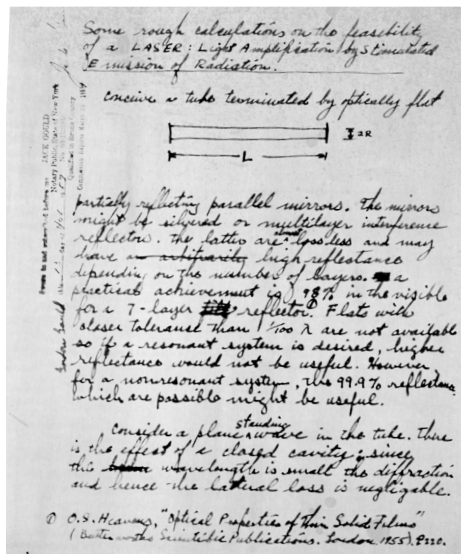 Some rough calculations on the feasibility
of a LASER: Light Amplification by Stimulated
Emission of Radiation.
conceive a tube terminated by optically flat
2R
L
partially reflecting parallel mirrors. The mirrors
might be silvered or multilayer interference
reflectors. The latter are almost lossless and may
have an arbitrarily high reflectance
depending on the number of layers. a
practical achievement is 98% in the visible
for a 7-layer reflector.① Flats with
closer tolerance than 1/100 λ are not available
so if a resonant system is desired, higher
reflectance would not be useful. However
for a nonresonant system, the 99.9% reflectance
which are possible might be useful.
Consider a plane standing wave in the tube. There
is the effect of a closed cavity; since
the wavelength is small the diffraction
and hence the lateral loss is negligable.
① O.S. Heavens, "Optical Properties of Thin Solid Films"
(Butterworths Scientific Publications, London 1955) P220.
JACK GOULD
Notary Public, State of New York
Gordon Gould